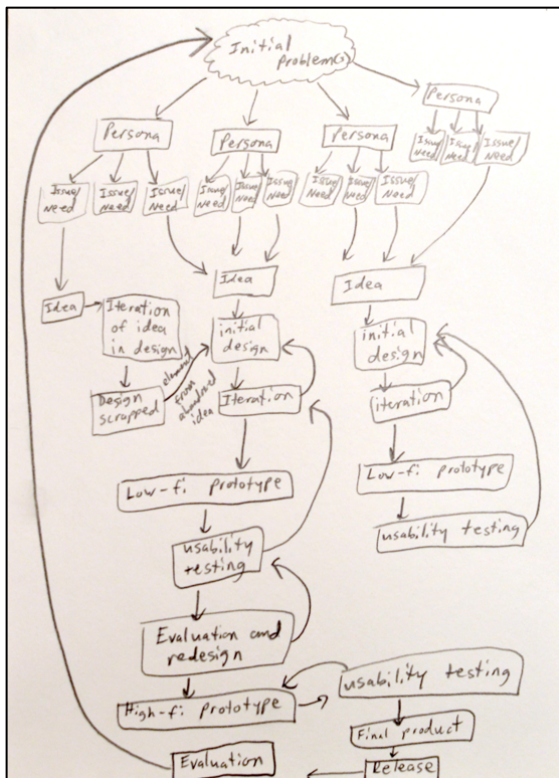 Initial
Problem(s)
Persona
Persona
Persona
Persona
Issue/
Need
Issue/
Need
Issue/
Need
Issue/
Need
Issue/
Need
Issue/
Need
Issue/
Need
Issue/
Need
Issue/
Need
Issue/
Need
Issue/
Need
Issue/
Need
Idea
Iteration
of idea
in design
Design
scrapped
element
from
abandoned
idea
Idea
initial
design
Iteration
Low-fi prototype
usability
testing
Evaluation and
redesign
High-fi prototype
Idea
initial
design
iteration
Low-fi prototype
usability testing
usability testing
Final product
Release
Evaluation